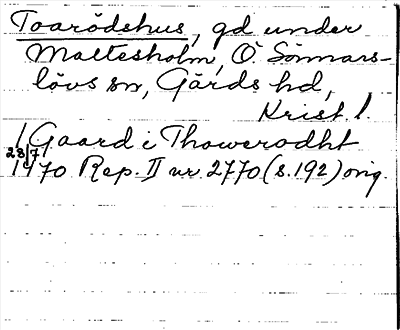 Toarödshus, gd under
Maltesholm, Ö. Sönnars-
lövs sn, Gärds hd,
Krist. l.
/ Gaard i Thowerodht
23/7 1470 Rep. II nr. 2770 (s. 192) orig.